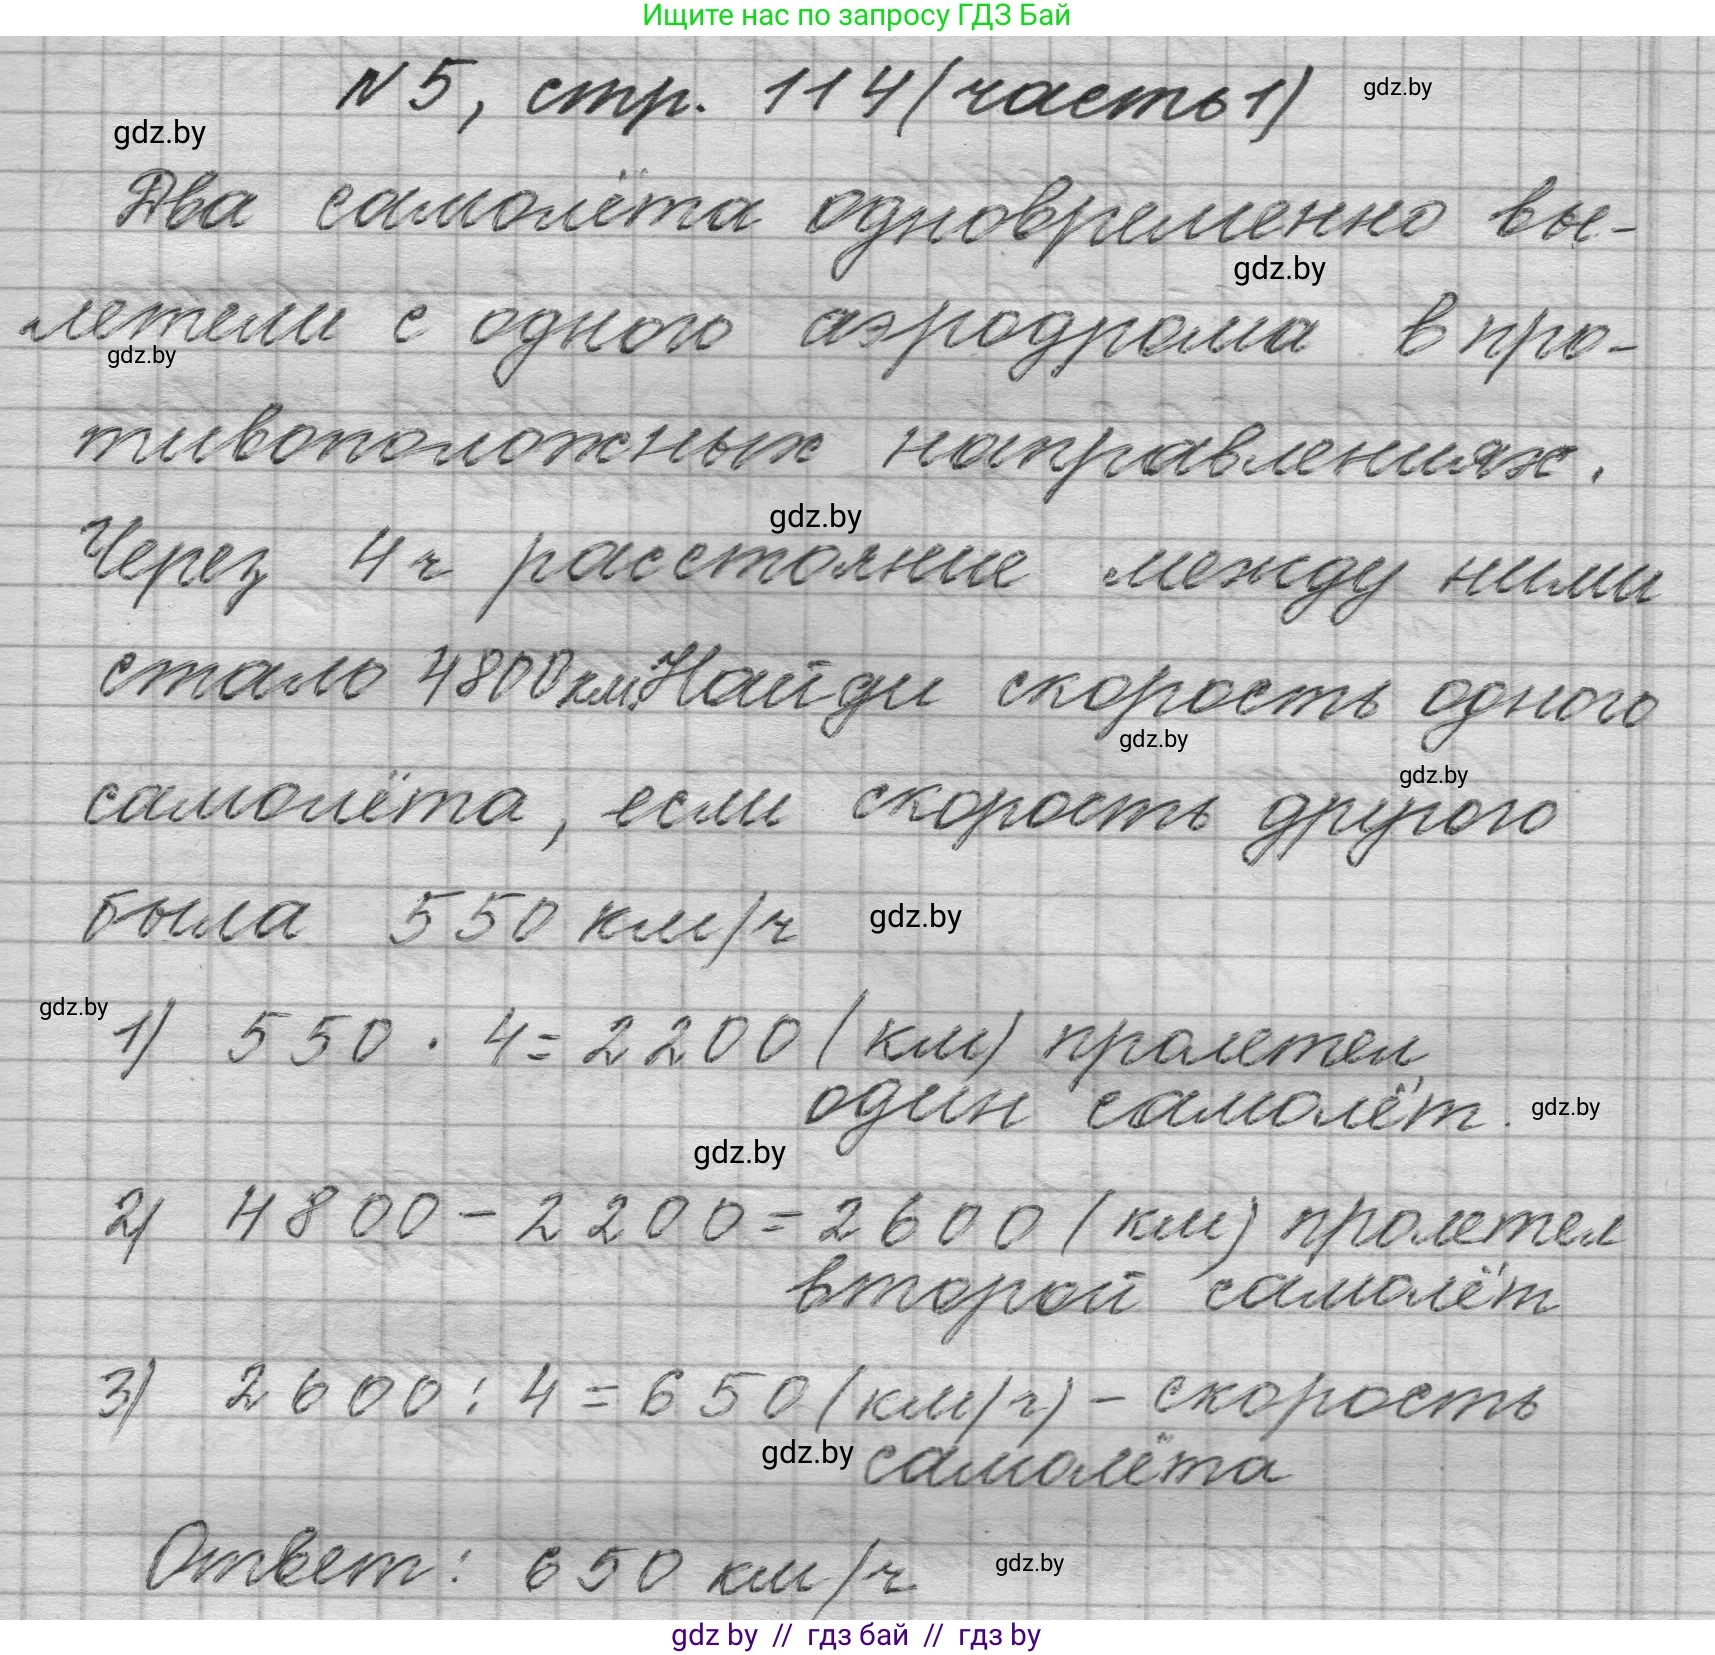 Ищите нас по запросу ГДЗ Бай
N 5, стр. 114 (часть 1)
gdz.by
gdz.by
Два самолёта одновременно вы-
gdz.by
летели с одного аэродрома в про-
gdz.by
тивоположных направлениях.
gdz.by
Через 4 ч расстояние между ними
стало 4800 км. Найди скорость одного
gdz.by
gdz.by
самолёта, если скорость другого
была 550 км/ч
gdz.by
gdz.by
1) 550 · 4 = 2200 (км) пролетел
один самолёт.
gdz.by
gdz.by
2) 4800 - 2200 = 2600 (км) пролетел
второй самолёт
3) 2600 : 4 = 650 (км/ч) - скорость
gdz.by
самолёта
Ответ: 650 км/ч
gdz.by
gdz by // гдз бай // гдз by